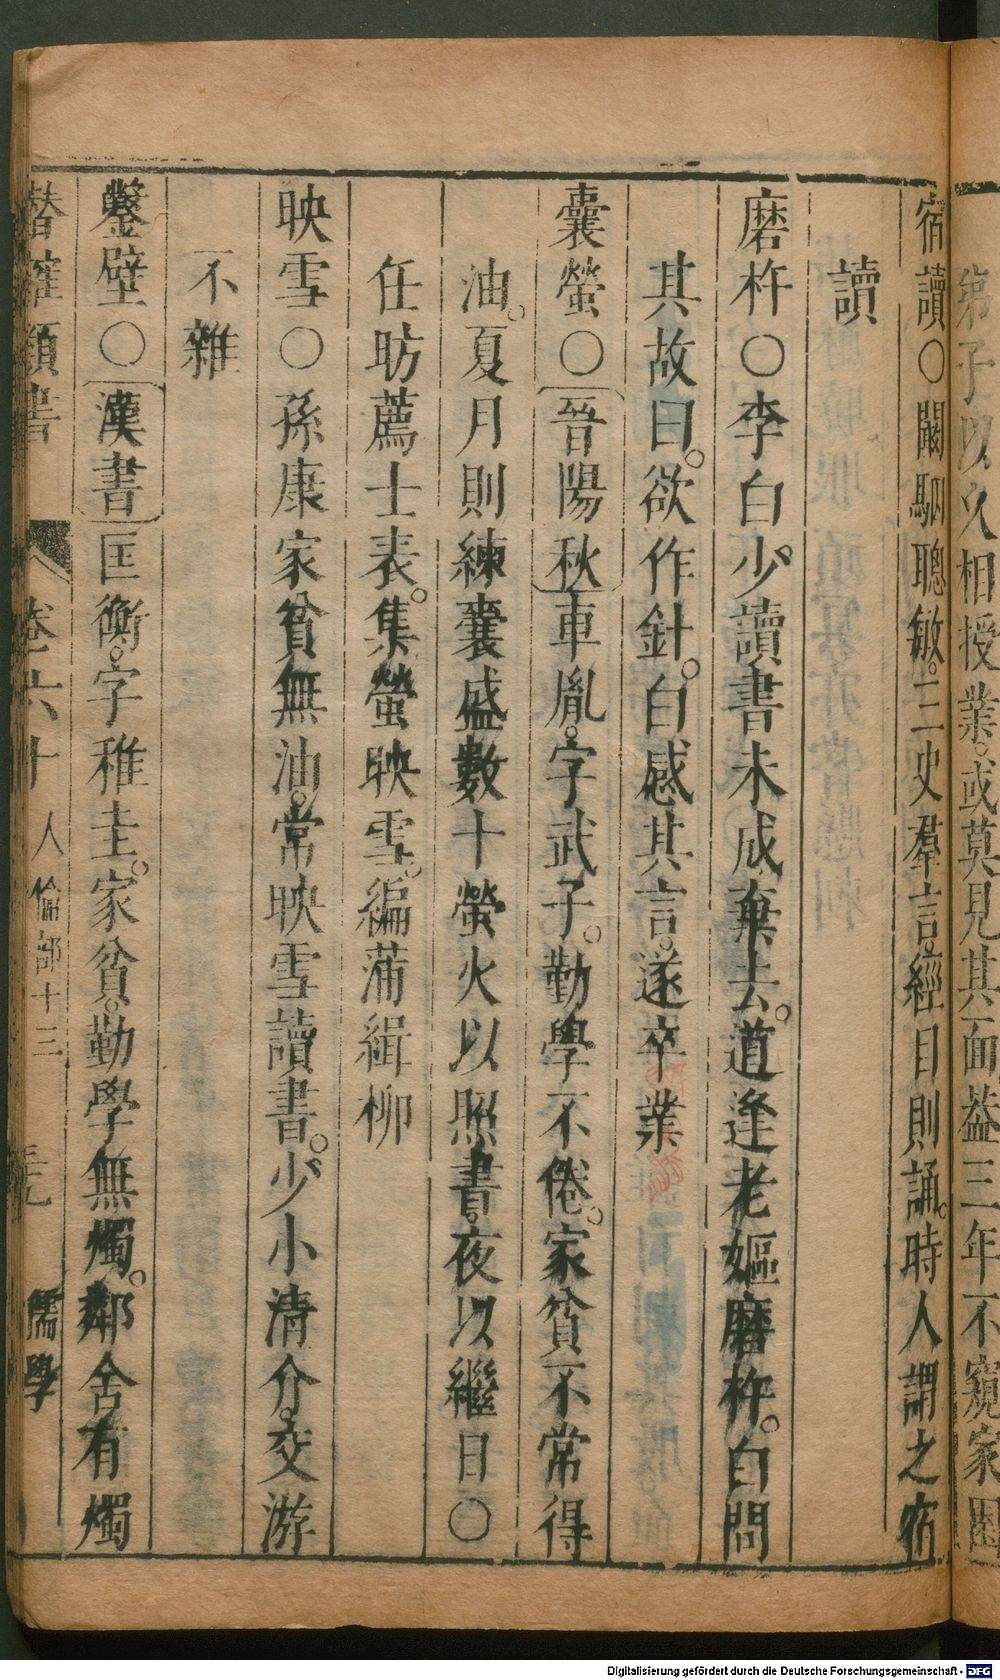 弟子以久相授業。或莫見其面葢三年不窺家園
宿讀○闞駰聰敏。三史羣言經目則誦。時人謂之宿
讀
磨杵○李白少讀書未成棄去。道逢老嫗磨杵。白問
其故曰。欲作針。白感其言。遂卒業
囊螢○晉陽秋車胤。字武子。勤學不倦。家貧不常得
油。夏月則練囊盛數十螢火以照書。夜以繼日○
任昉薦士表。集螢映雪。編蒲緝柳
映雪○孫康家貧無油。常映雪讀書。少小清介。交游
不雜
鑿壁○漢書匡衡。字稚圭。家貧。勤學無燭。鄰舍有燭
潛確類書 卷六十 人倫部十三 三九 儒學
Digitalisierung gefördert durch die Deutsche Forschungsgemeinschaft - DFG